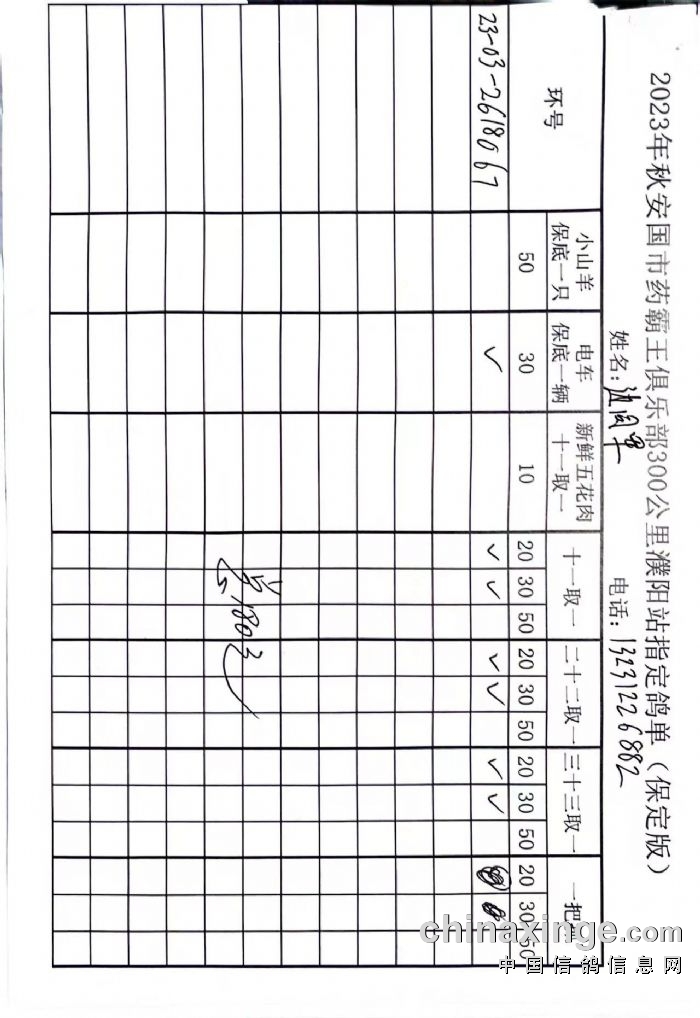 2023年秋安国市药霸王俱乐部300公里濮阳站指定鸽单（保定版）
姓名： 电话：13231226882
环号 小山羊 保底一只 电车 保底一辆 新鲜五花肉 十一取一 十一取一 二十二取一 三十三取一 一把
50 30 10 20 30 50 20 30 50 20 30 50 20 30 50
23-03-2618067 ✓ ✓ ✓ ✓ ✓ ✓ ✓
共180元
chinaxinge.com
中国信鸽信息网